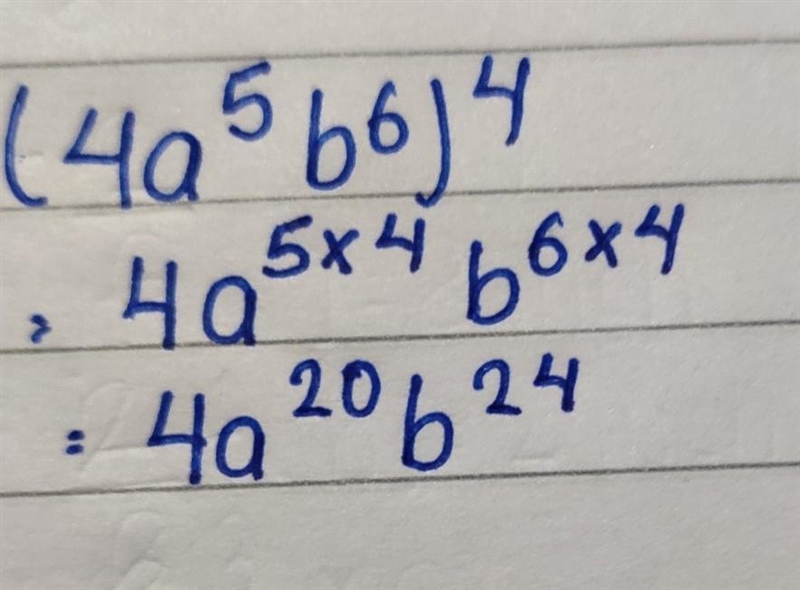 (4a⁵b⁶)⁴
= 4a⁵ˣ⁴ b⁶ˣ⁴
= 4a²⁰b²⁴